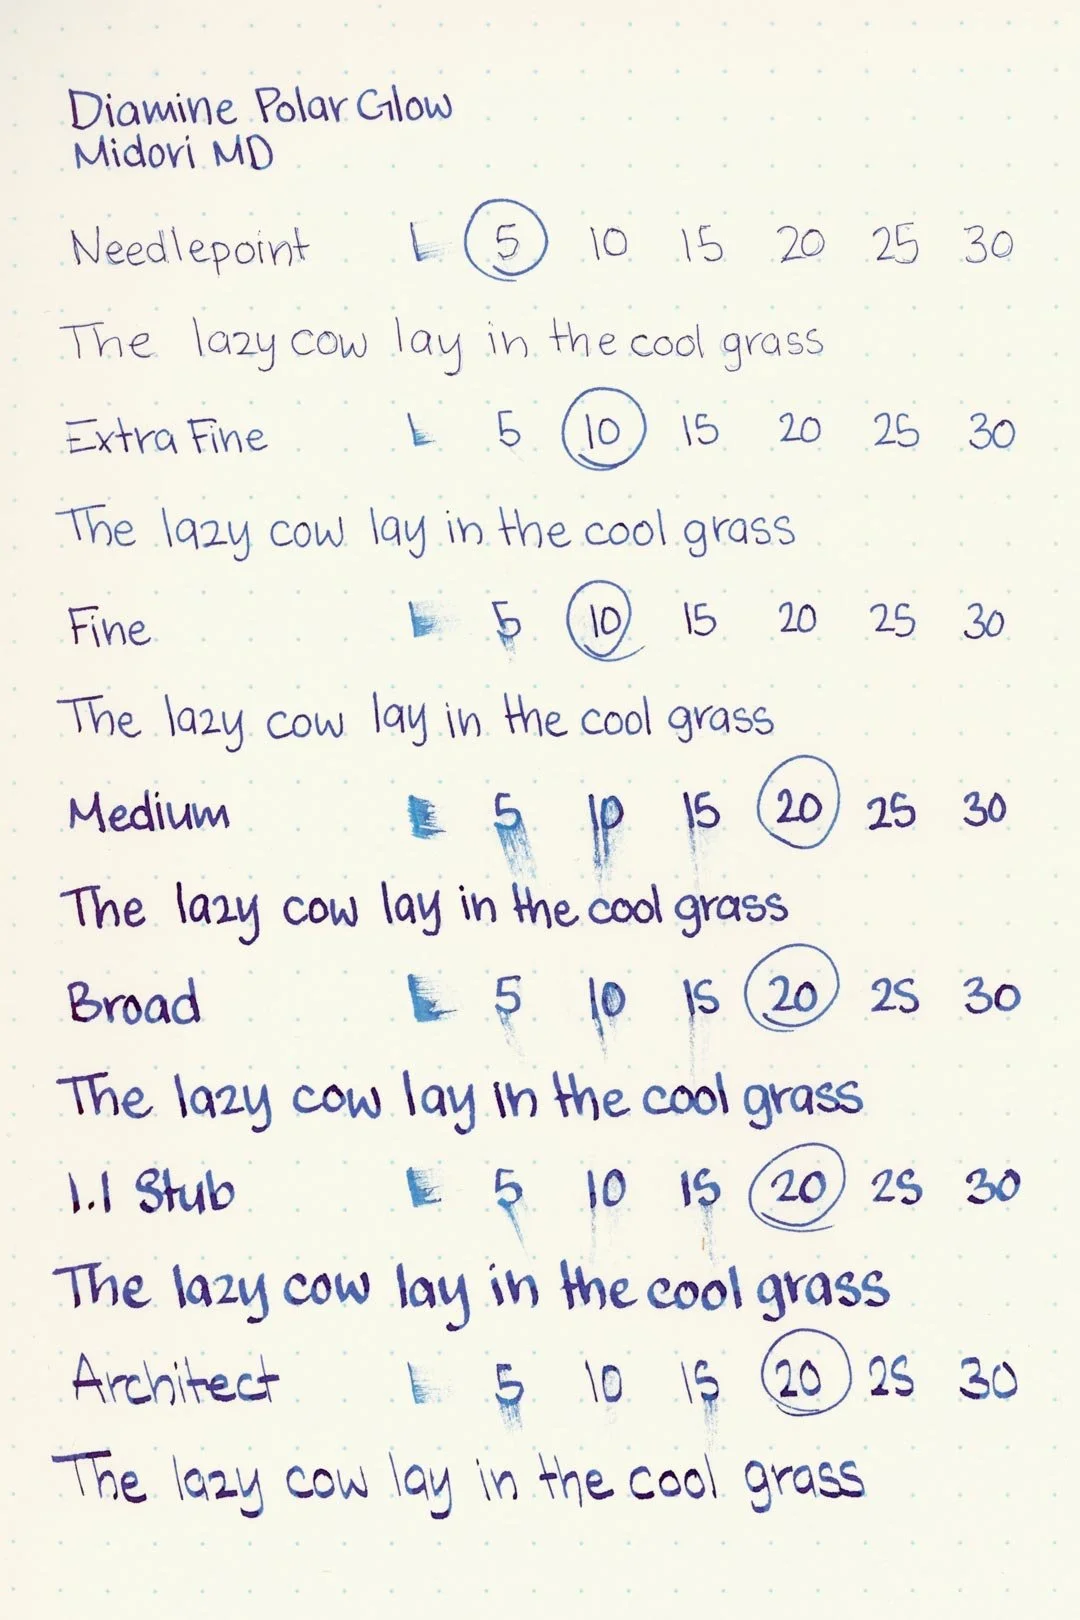 Diamine Polar Glow
Midori MD
Needlepoint L 5 10 15 20 25 30
The lazy cow lay in the cool grass
Extra Fine L 5 10 15 20 25 30
The lazy cow lay in the cool grass
Fine L 5 10 15 20 25 30
The lazy cow lay in the cool grass
Medium L 5 10 15 20 25 30
The lazy cow lay in the cool grass
Broad L 5 10 15 20 25 30
The lazy cow lay in the cool grass
1.1 Stub L 5 10 15 20 25 30
The lazy cow lay in the cool grass
Architect L 5 10 15 20 25 30
The lazy cow lay in the cool grass